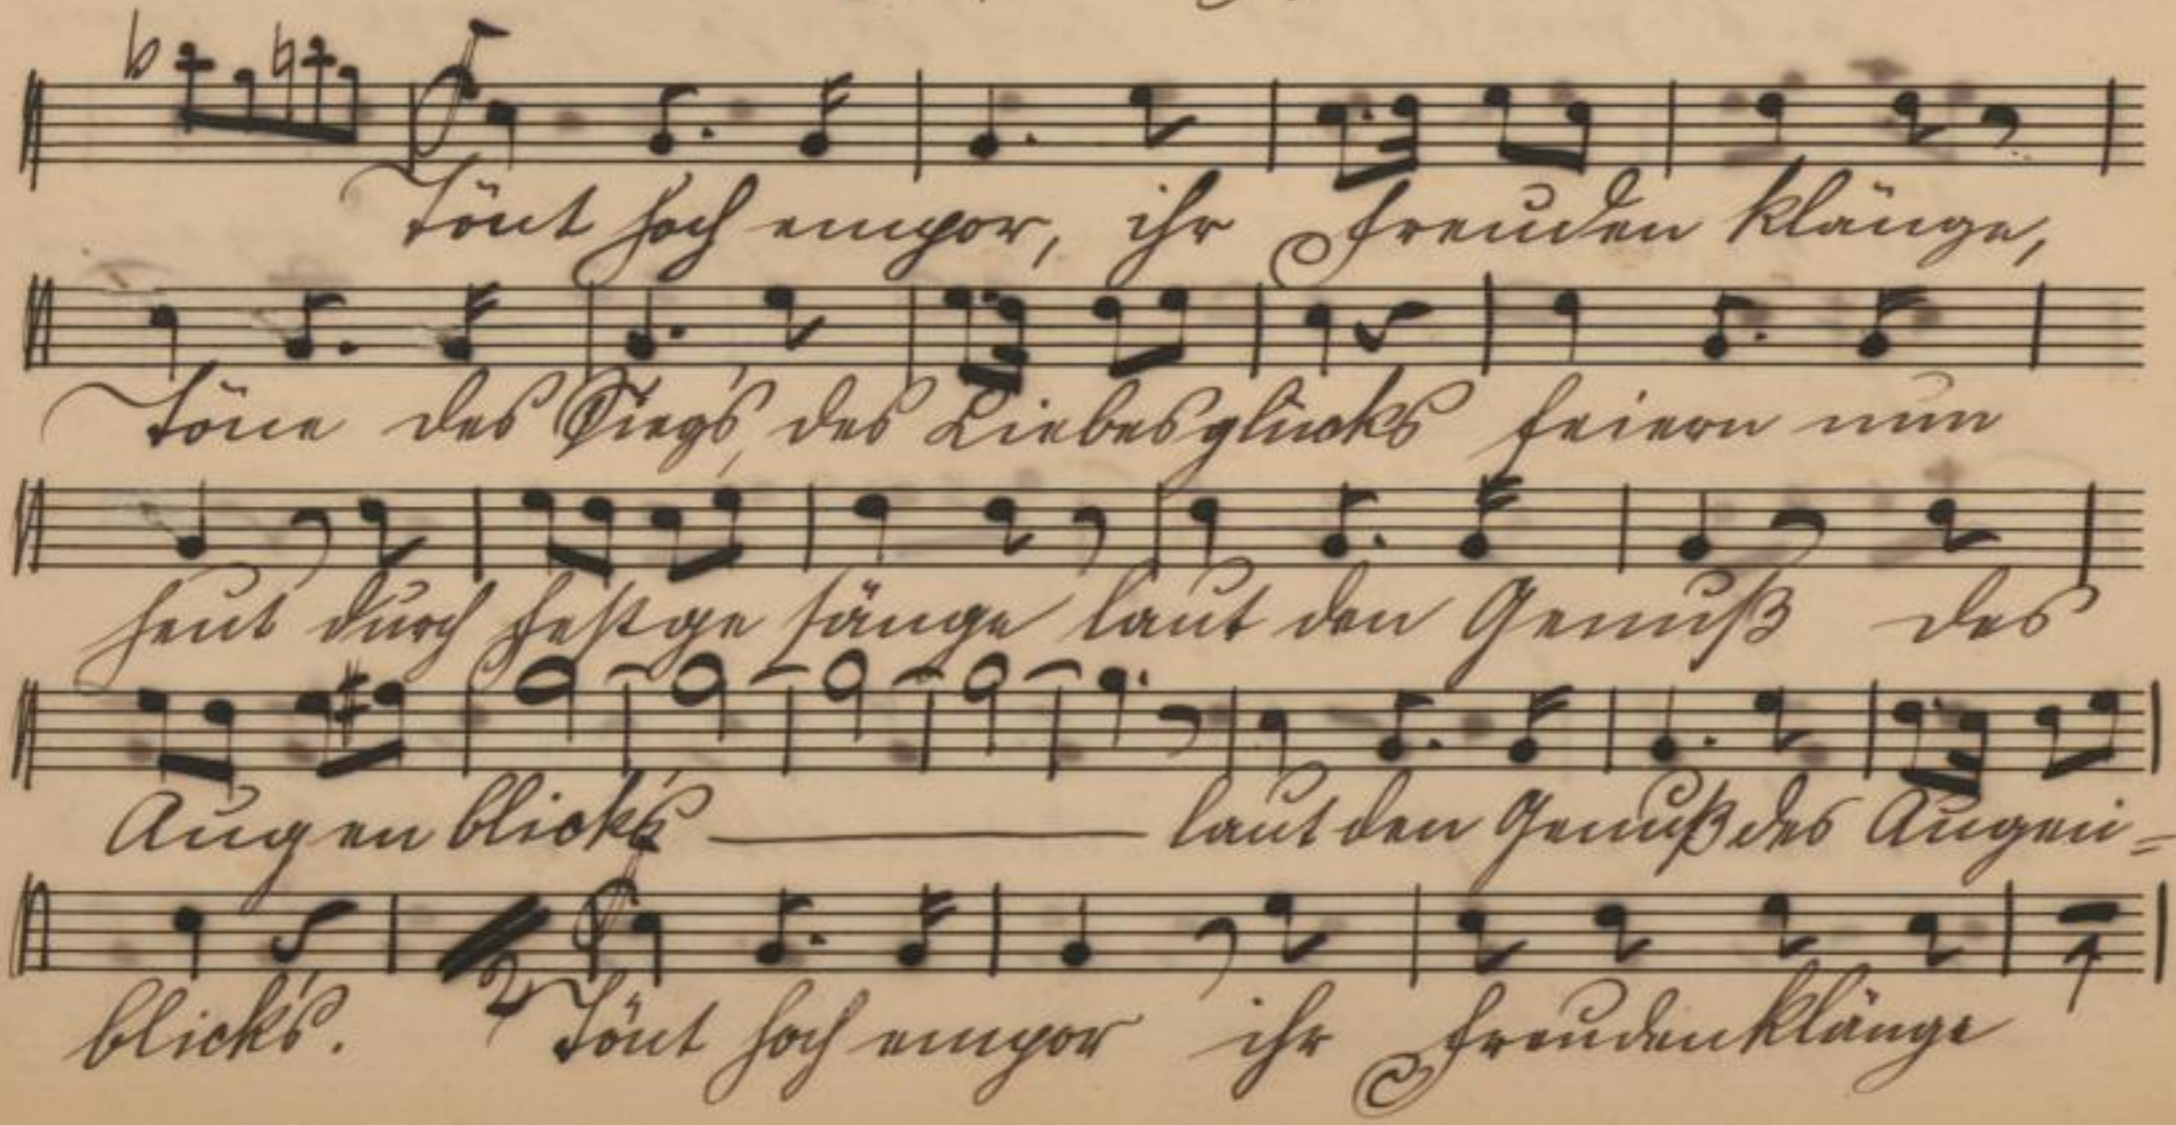 Tönt hoch empor, ihr Freuden klänge,
Töne des Sieg's, des Liebesglücks feiern nun
heut durch Festge sänge laut den Genuß des
Augen blick's laut den Genuß des Augen=
blick's. 2 Tönt hoch empor ihr Freudenklänge